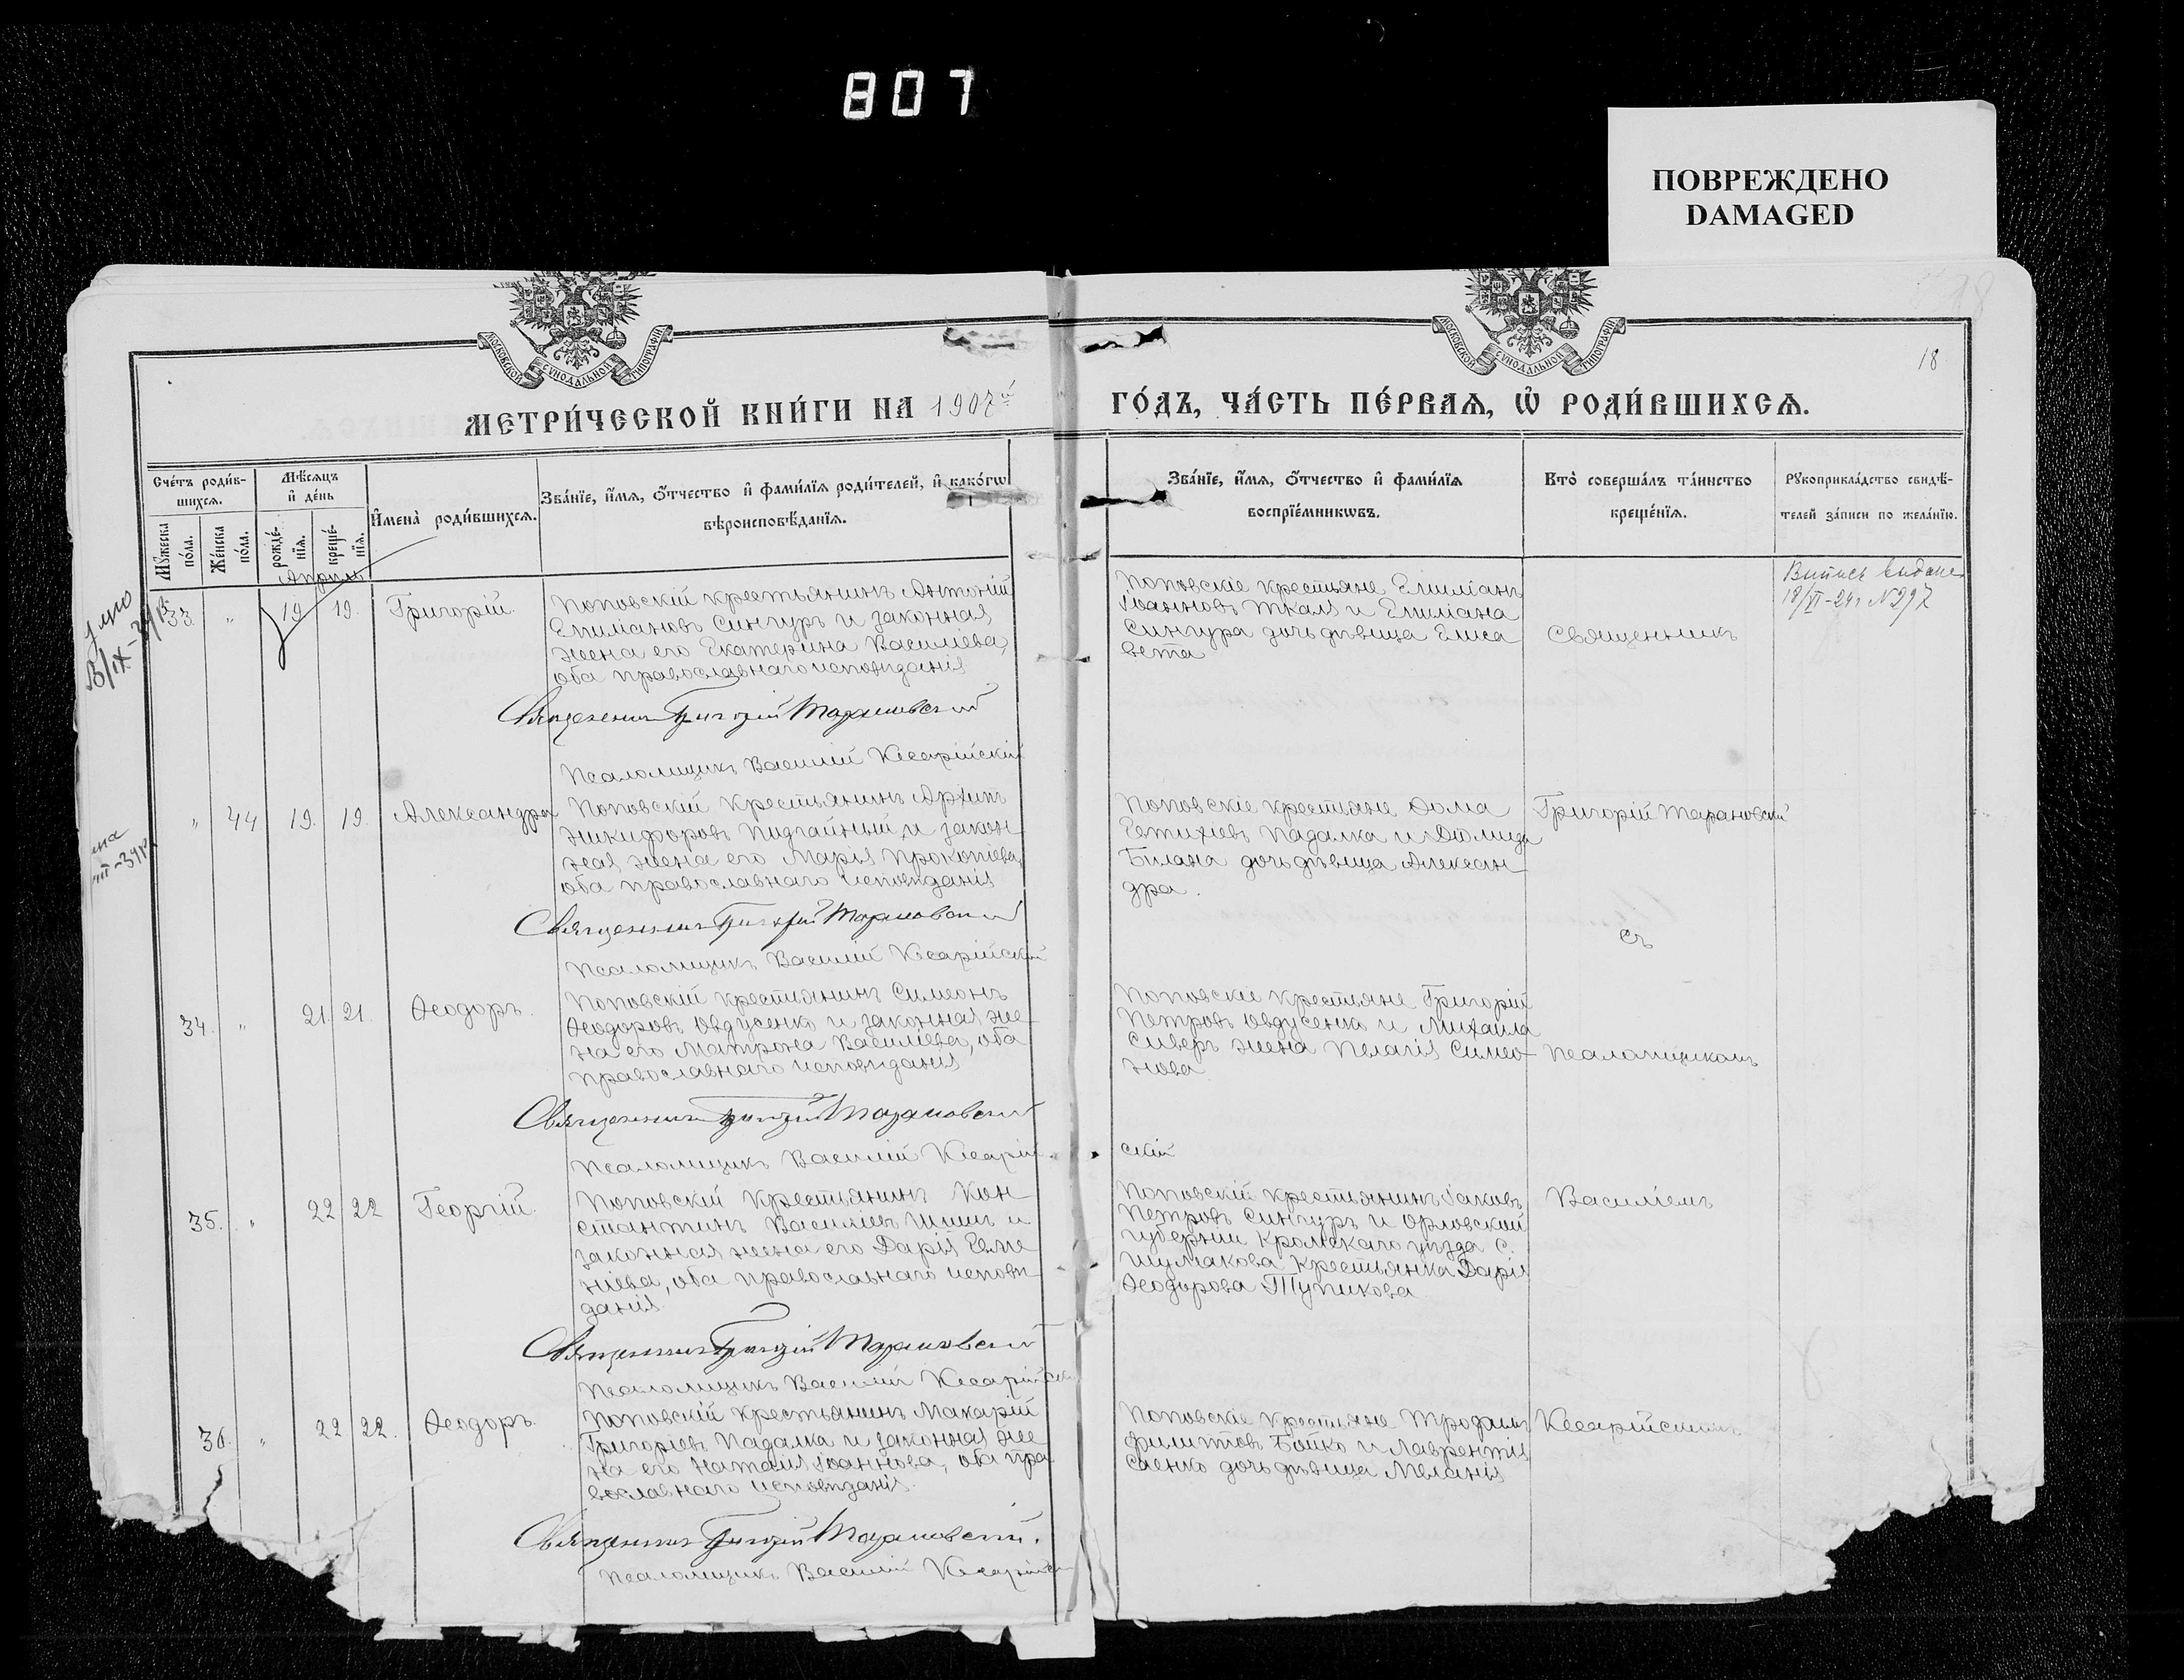 807
ПОВРЕЖДЕНО
DAMAGED
МОСКОВСКОЙ СУНОДАЛЬНОЙ ТИПОГРАФІИ
МОСКОВСКОЙ СУНОДАЛЬНОЙ ТИПОГРАФІИ
18
МЕТРИ́ЧЕСКОЙ КНИ́ГИ НА 1907й
ГО́ДЪ, ЧА́СТЬ ПЕ́РВАѦ, Ѡ҆ РОДИ́ВШИХСѦ.
Сче́тъ роди́в-
шихсѧ.
Мꙋ́жеска по́ла.
Же́нска по́ла.
Мѣ́сѧцъ
и҆ де́нь
рожде́-нїѧ.
креще́-нїѧ.
И҆мена̀ роди́вшихсѧ.
Зва́нїе, и҆́мѧ, ѻ҆́тчество и҆ фами́лїѧ роди́телей, и҆ како́гѡ
вѣроисповѣ́данїѧ.
Зва́нїе, и҆́мѧ, ѻ҆́тчество и҆ фами́лїѧ
воспрїе́мникѡвъ.
Кто̀ соверша́лъ та́инство
креще́нїѧ.
Рꙋкоприкла́дство свидѣ́-
телей за́писи по жела́нїю.
Апрѣль
33. " 19 19. Григорій
Поповскій крестьянинъ Антоній
Емиліановъ Сингуръ и законная
жена его Екатерина Василіева,
оба православнаго исповѣданія
Священникъ Григорій Тарановскій
Псаломщикъ Василій Кесарійскій
Поповскіе крестьяне Емиліанъ
Іоанновъ Ткаля и Емиліана
Сингура дочь дѣвица Елиса
вета
Священникъ
Випись видана
18/VI-24 г N297
" 44 19. 19. Александра
Поповскій крестьянинъ Архипъ
Никифоровъ Пидгайный и закон
ная жена его Марія Прокопіева,
оба православнаго исповѣданія
Священникъ Григорій Тарановскій
Псаломщикъ Василій Кесарійскій
Поповскіе крестьяне Ѳома
Евтихіевъ Падалка и
Билана дочь дѣвица Алексан
дра.
Григорій Тарановскій
съ
34. " 21. 21. Ѳеодоръ.
Поповскій крестьянинъ Симеонъ
Ѳеодоровъ Овдусенко и законная же
на его Матрона Василіева, оба
православнаго исповѣданія
Священникъ Григорій Тарановскій
Псаломщикъ Василій Кесарій
скій
Поповскіе крестьяне Григорій
Петровъ Овдусенко и Михаила
Сиверъ жена Пелагія Симео
нова
псаломщикомъ
35. " 22 22 Георгій
Поповскій крестьянинъ Кон
стантинъ Василіевъ Шишъ и
законная жена его Дарія Евме
ніева, оба православнаго исповѣ
данія.
Священникъ Григорій Тарановскій
Псаломщикъ Василій Кесарійск
Поповскій крестьянинъ Іаковъ
Петровъ Сингуръ и Орловской
губерніи Кромскаго уѣзда с.
Шумакова крестьянка Дарія
Ѳеодорова Тупикова
Василіемъ
36. " 22 22. Ѳеодоръ.
Поповскій крестьянинъ Макарій
Григоріевъ Падалка и законная же
на его Наталія Іоаннова, оба пра
вославнаго исповѣданія.
Священникъ Григорій Тарановскій.
Псаломщикъ Василій Кесарійск
Поповскіе крестьяне Трофимъ
Филиповъ Бойко и Лаврентія
Саенко дочь дѣвица Меланія
Кесарійскимъ